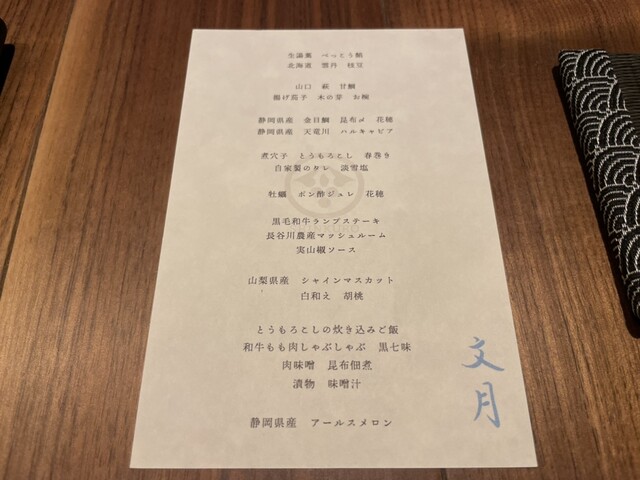 生湯葉　べっこう餡
北海道　雲丹　枝豆
山口　萩　甘鯛
揚げ茄子　木の芽　お椀
静岡県産　金目鯛　昆布〆　花穂
静岡県産　天竜川　ハルキャビア
煮穴子　とうもろこし　春巻き
自家製のタレ　淡雪塩
牡蠣　ポン酢ジュレ　花穂
黒毛和牛ランプステーキ
長谷川農産マッシュルーム
実山椒ソース
山梨県産　シャインマスカット
白和え　胡桃
とうもろこしの炊き込みご飯
和牛もも肉しゃぶしゃぶ　黒七味
肉味噌　昆布佃煮
漬物　味噌汁
静岡県産　アールスメロン
文月